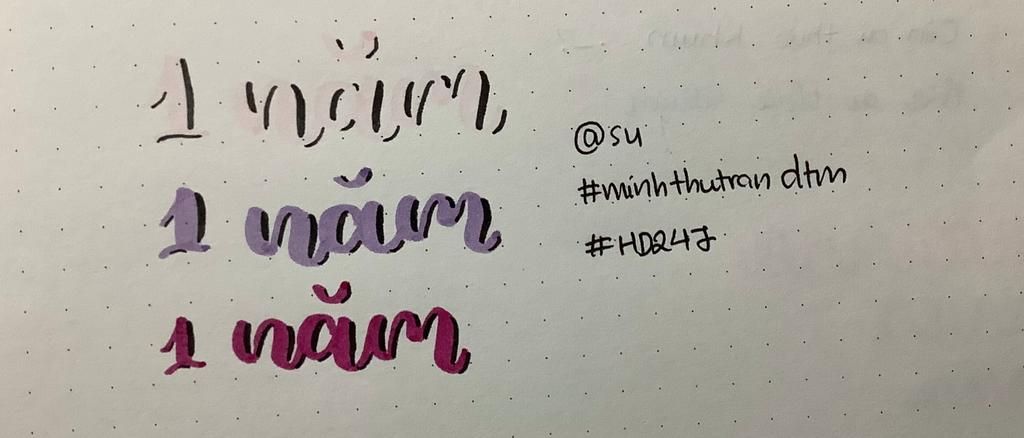 1 năm
1 năm
1 năm
@su
#minhthutran dtm
#HD24J